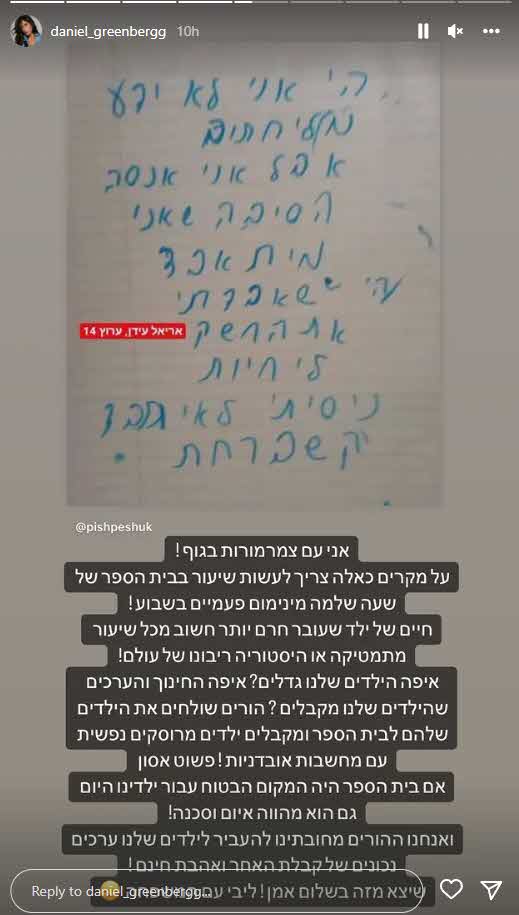 daniel_greenbergg 10h
הי אני לא ידע
אבל אני אנסה
הסיבה שאני
שאבדתי
אריאל עידן, ערוץ 14
את החשק
לי חיות
ניסיתי
@pishpeshuk
אני עם צמרמורות בגוף!
על מקרים כאלה צריך לעשות שיעור בבית הספר של
שעה שלמה מינימום פעמיים בשבוע!
חיים של ילד שעובר חרם יותר חשוב מכל שיעור
מתמטיקה או היסטוריה ריבונו של עולם!
איפה הילדים שלנו גדלים? איפה החינוך והערכים
שהילדים שלנו מקבלים? הורים שולחים את הילדים
שלהם לבית הספר ומקבלים ילדים מרוסקים נפשית
עם מחשבות אובדניות! פשוט אסון
אם בית הספר היה המקום הבטוח עבור ילדינו היום
גם הוא מהווה איום וסכנה!
ואנחנו ההורים מחובתינו להעביר לילדים שלנו ערכים
נכונים של קבלת האחר ואהבת חינם!
שיצא מזה בשלום אמן! ליבי עם
Reply to daniel_greenbergg...